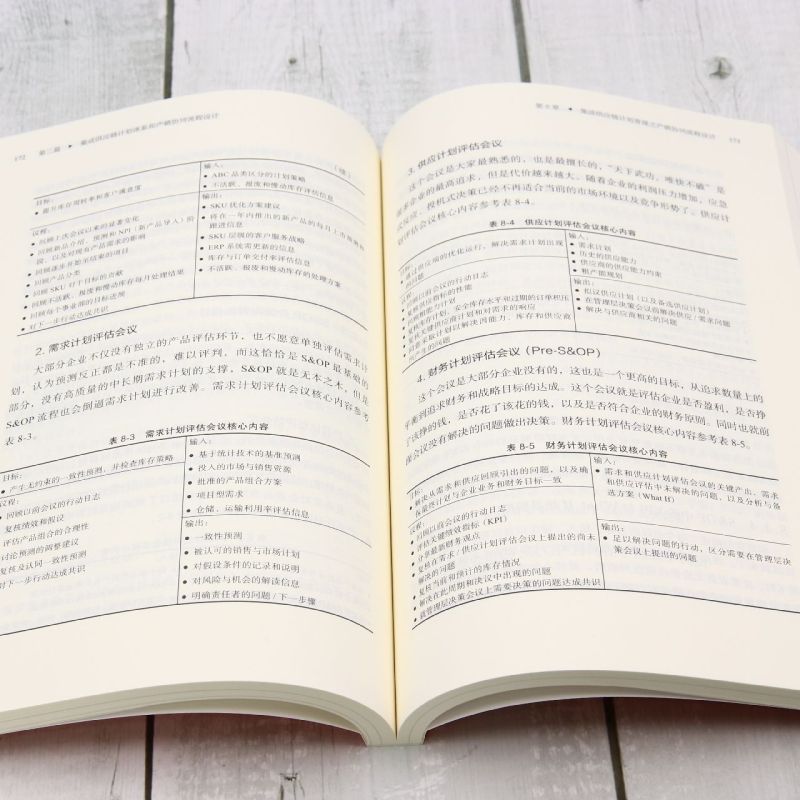 172 第二篇 ▸ 集成供应链计划体系和产销协同流程设计
（续）
目标：
● 提升库存周转率和客户满意度
输入：
● ABC 品类区分的计划策略
● 不活跃、报废和慢动库存评估信息
议程：
● 回顾上次会议以来的显著变化
● 回顾新品介绍、预测和 NPI（新产品导入）阶
段，以及对现有产品需求的影响
● 回顾逐步开始结束的项目
● 回顾产品分类
● 回顾 SKU 对于目标的贡献
● 回顾不活跃、报废和慢动库存每月处理结果
● 回顾每个事业部的目标进展
● 对下一步行动达成共识
输出：
● SKU 优化方案建议
● 将在一年内推出的新产品的每月上市预测和
跟进信息
● SKU 层级的客户服务战略
● ERP 系统需更新的信息
● 库存与订单交付率评估信息
● 不活跃、报废和慢动库存的处理方案
2. 需求计划评估会议
大部分企业不仅没有独立的产品评估环节，也不愿意单独评估需求计
划，认为预测反正都是不准的，难以评判，而这恰恰是 S&OP 最基础的
部分，没有高质量的中长期需求计划的支撑，S&OP 就是无本之木，但是
S&OP 流程也会倒逼需求计划进行改善。需求计划评估会议核心内容参考
表 8-3。
表 8-3 需求计划评估会议核心内容
目标：
● 产生无约束的一致性预测，并检查库存策略
输入：
● 基于统计技术的基准预测
● 投入的市场与销售资源
● 批准的产品组合方案
● 项目型需求
● 仓储、运输利用率评估信息
议程：
回顾以前会议的行动日志
复核绩效和假设
评估产品组合的合理性
讨论预测的调整建议
复核及认同一致性预测
对下一步行动达成共识
输出：
● 一致性预测
● 被认可的销售与市场计划
● 对假设条件的记录和说明
● 对风险与机会的解读信息
● 明确责任者的问题 / 下一步骤
第八章 ▸ 集成供应链计划管理之产销协同流程设计 173
3. 供应计划评估会议
这个会议是大家最熟悉的，也是最擅长的，“天下武功，唯快不破”是
很多企业的最高追求，但是代价越来越大。随着企业的利润压力增加，应急
式反应、投机式决策已经不再适合当前的市场环境以及竞争形势了。供应计
划评估会议核心内容参考表 8-4。
表 8-4 供应计划评估会议核心内容
通过供应商的优化运行，解决需求计划出现
的问题
输入：
● 需求计划
● 历史的供应能力
● 供应商的供应能力约束
● 粗产能规划
议程：
● 回顾以前会议的行动日志
● 复核供应指标的性能
● 回顾能力计划
● 复核库存计划、安全库存水平和过期的订单积压
● 回顾关键供应商计划和对需求的响应
● 同意采取计划以解决因能力、库存和供应商
所产生的问题
输出：
● 拟议供应计划（以及备选供应计划）
● 在管理层决策会议前解决供应 / 需求问题
● 解决与供应商相关的问题
4. 财务计划评估会议（Pre-S&OP）
这个会议是大部分企业没有的，这也是一个更高的目标，从追求数量上的
平衡到追求财务和战略目标的达成。这个会议就是评估企业是否盈利，是否挣
了该挣的钱，是否花了该花的钱，以及是否符合企业的财务原则。同时也就前
面会议没有解决的问题做出决策。财务计划评估会议核心内容参考表 8-5。
表 8-5 财务计划评估会议核心内容
目标：
● 解决从需求和供应回顾引出的问题，以及确
保最终计划与企业业务和财务目标一致
输入：
● 需求和供应计划评估会议的关键产出，需求
和供应评估中未解决的问题，以及分析与备
选方案（What If）
议程：
● 回顾以前会议的行动日志
● 评估关键绩效指标（KPI）
● 介绍最新财务观点
● 复核在需求 / 供应计划评估会议上提出的尚未
解决的问题
● 复核当前和预计的库存情况
● 解决在此周期和决议中出现的问题
● 就管理层决策会议上需要决策的问题达成共识
输出：
● 足以解决问题的行动，区分需要在管理层决
策会议上提出的问题